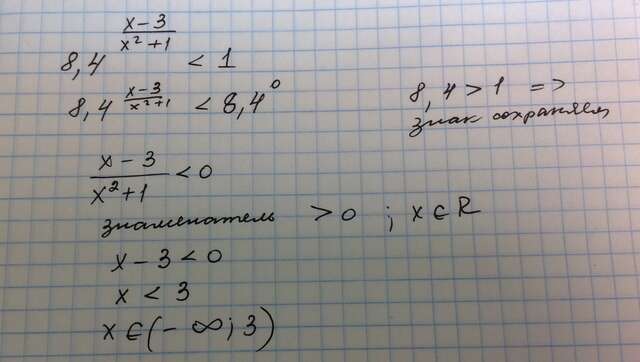 8,4^((x-3)/(x²+1)) < 1
8,4^((x-3)/(x²+1)) < 8,4⁰
8,4 > 1 =>
знак сохраняем
(x-3)/(x²+1) < 0
знаменатель > 0 ; x ∈ R
x - 3 < 0
x < 3
x ∈ (- ∞; 3)